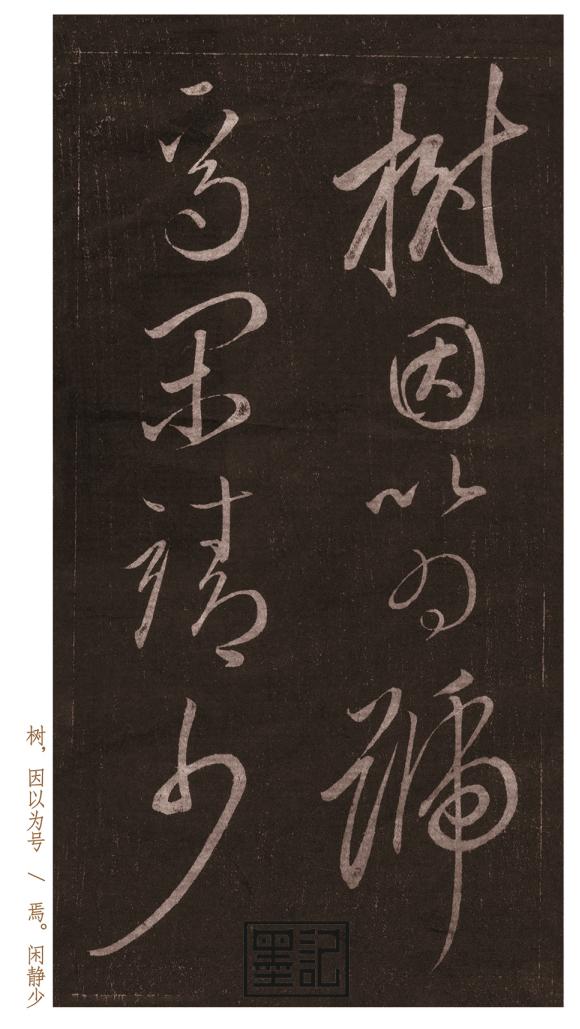 樹因以为號
焉閑靖少
树，因以为号 / 焉。闲静少
墨記